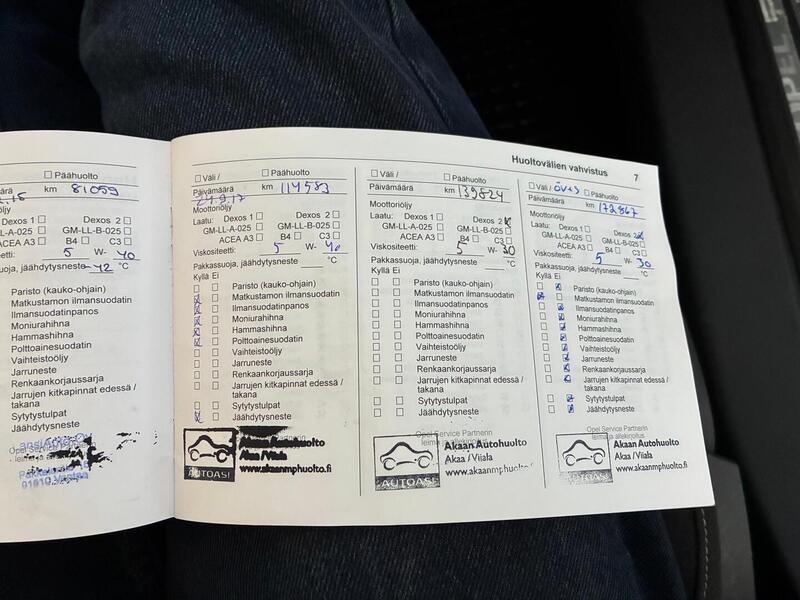 Huoltovälien vahvistus 7
Päähuolto
km 81059
Dexos 1 Dexos 2
GM-LL-A-025 GM-LL-B-025
ACEA A3 B4 C3
5 W- 40
Pakkassuoja, jäähdytysneste -42 °C
Paristo (kauko-ohjain)
Matkustamon ilmansuodatin
Ilmansuodatinpanos
Moniurahihna
Hammashihna
Polttoainesuodatin
Vaihteistoöljy
Jarruneste
Renkaankorjaussarja
Jarrujen kitkapinnat edessä /
takana
Sytytystulpat
Jäähdytysneste
Väli / Päähuolto
Päivämäärä km 114583
Moottoriöljy
Laatu: Dexos 1 Dexos 2
GM-LL-A-025 GM-LL-B-025
ACEA A3 B4 C3
Viskositeetti: 5 W- 40
Pakkassuoja, jäähdytysneste °C
Kyllä Ei
Paristo (kauko-ohjain)
Matkustamon ilmansuodatin
Ilmansuodatinpanos
Moniurahihna
Hammashihna
Polttoainesuodatin
Vaihteistoöljy
Jarruneste
Renkaankorjaussarja
Jarrujen kitkapinnat edessä /
takana
Sytytystulpat
Jäähdytysneste
AUTOASI
Akaan Autohuolto
Akaa /Viiala
www.akaanmphuolto.fi
Väli / Päähuolto
Päivämäärä km 139824
Moottoriöljy
Laatu: Dexos 1 Dexos 2
GM-LL-A-025 GM-LL-B-025
ACEA A3 B4 C3
Viskositeetti: 5 W- 30
Pakkassuoja, jäähdytysneste °C
Kyllä Ei
Paristo (kauko-ohjain)
Matkustamon ilmansuodatin
Ilmansuodatinpanos
Moniurahihna
Hammashihna
Polttoainesuodatin
Vaihteistoöljy
Jarruneste
Renkaankorjaussarja
Jarrujen kitkapinnat edessä /
takana
Sytytystulpat
Jäähdytysneste
Opel Service Partnerin
leima ja allekirjoitus
AUTOASI
Akaan Autohuolto
Akaa /Viiala
www.akaanmphuolto.fi
Väli / Päähuolto
Päivämäärä km 172867
Moottoriöljy
Laatu: Dexos 1 Dexos 2
GM-LL-A-025 GM-LL-B-025
ACEA A3 B4 C3
Viskositeetti: 5 W- 30
Pakkassuoja, jäähdytysneste °C
Kyllä Ei
Paristo (kauko-ohjain)
Matkustamon ilmansuodatin
Ilmansuodatinpanos
Moniurahihna
Hammashihna
Polttoainesuodatin
Vaihteistoöljy
Jarruneste
Renkaankorjaussarja
Jarrujen kitkapinnat edessä /
takana
Sytytystulpat
Jäähdytysneste
Opel Service Partnerin
leima ja allekirjoitus
AUTOASI
Akaan Autohuolto
Akaa /Viiala
www.akaanmphuolto.fi
OPEL